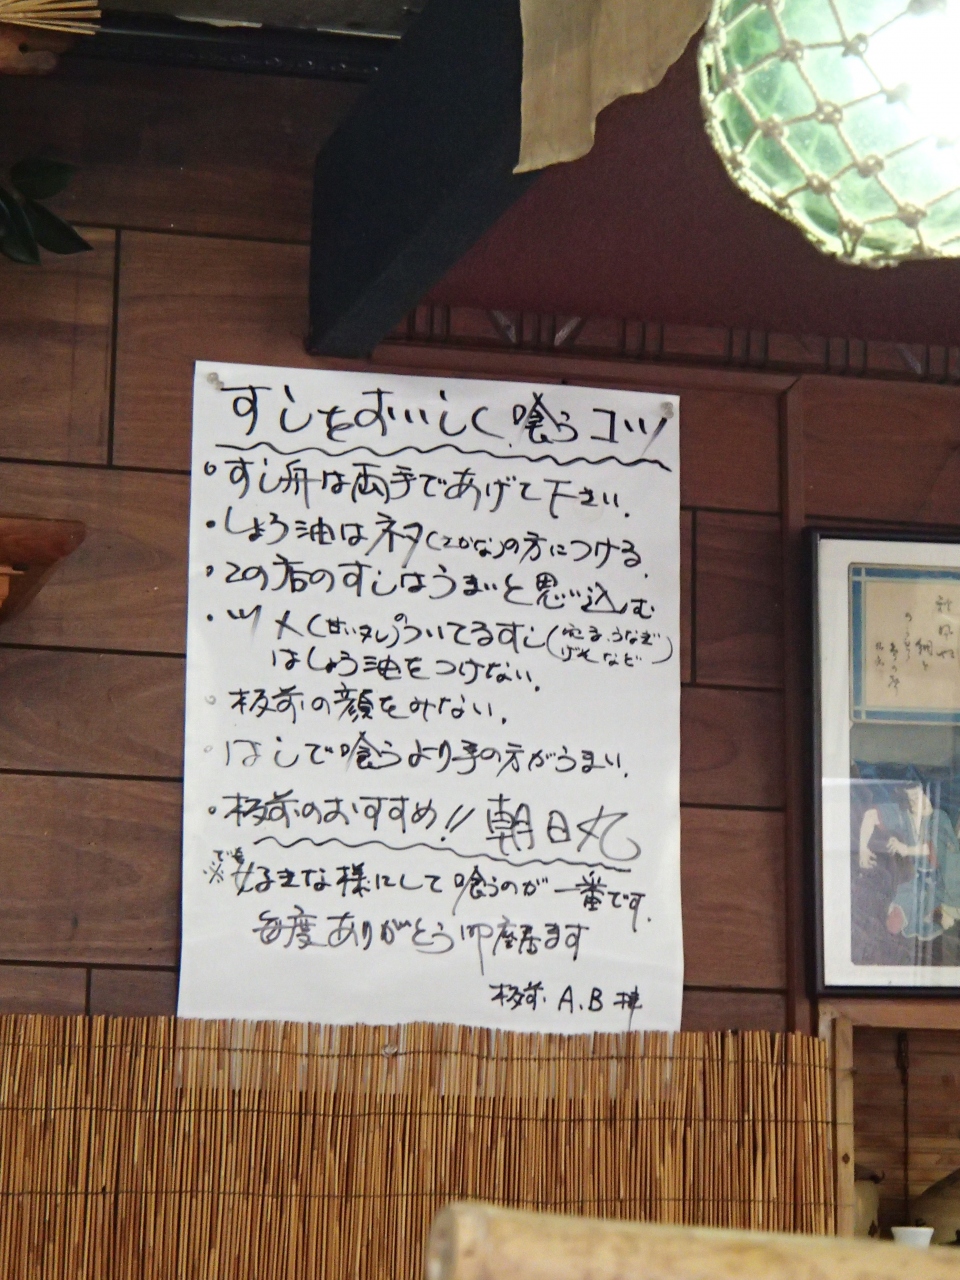 すしをおいしく喰うコツ
◦すし舟は両手であげて下さい.
・しょう油はネタ(さかな)の方につける.
・この店のすしはうまいと思い込む
・ツメ(甘いタレ)のついてるすし(穴子、うなぎ
げそなど)
はしょう油をつけない.
◦板前の顔をみない.
◦はしで喰うより手の方がうまい.
◦板前のおすすめ!! 朝日丸
※でも
好きな様にして喰うのが一番です.
毎度ありがとう御座居ます
板前 A.B